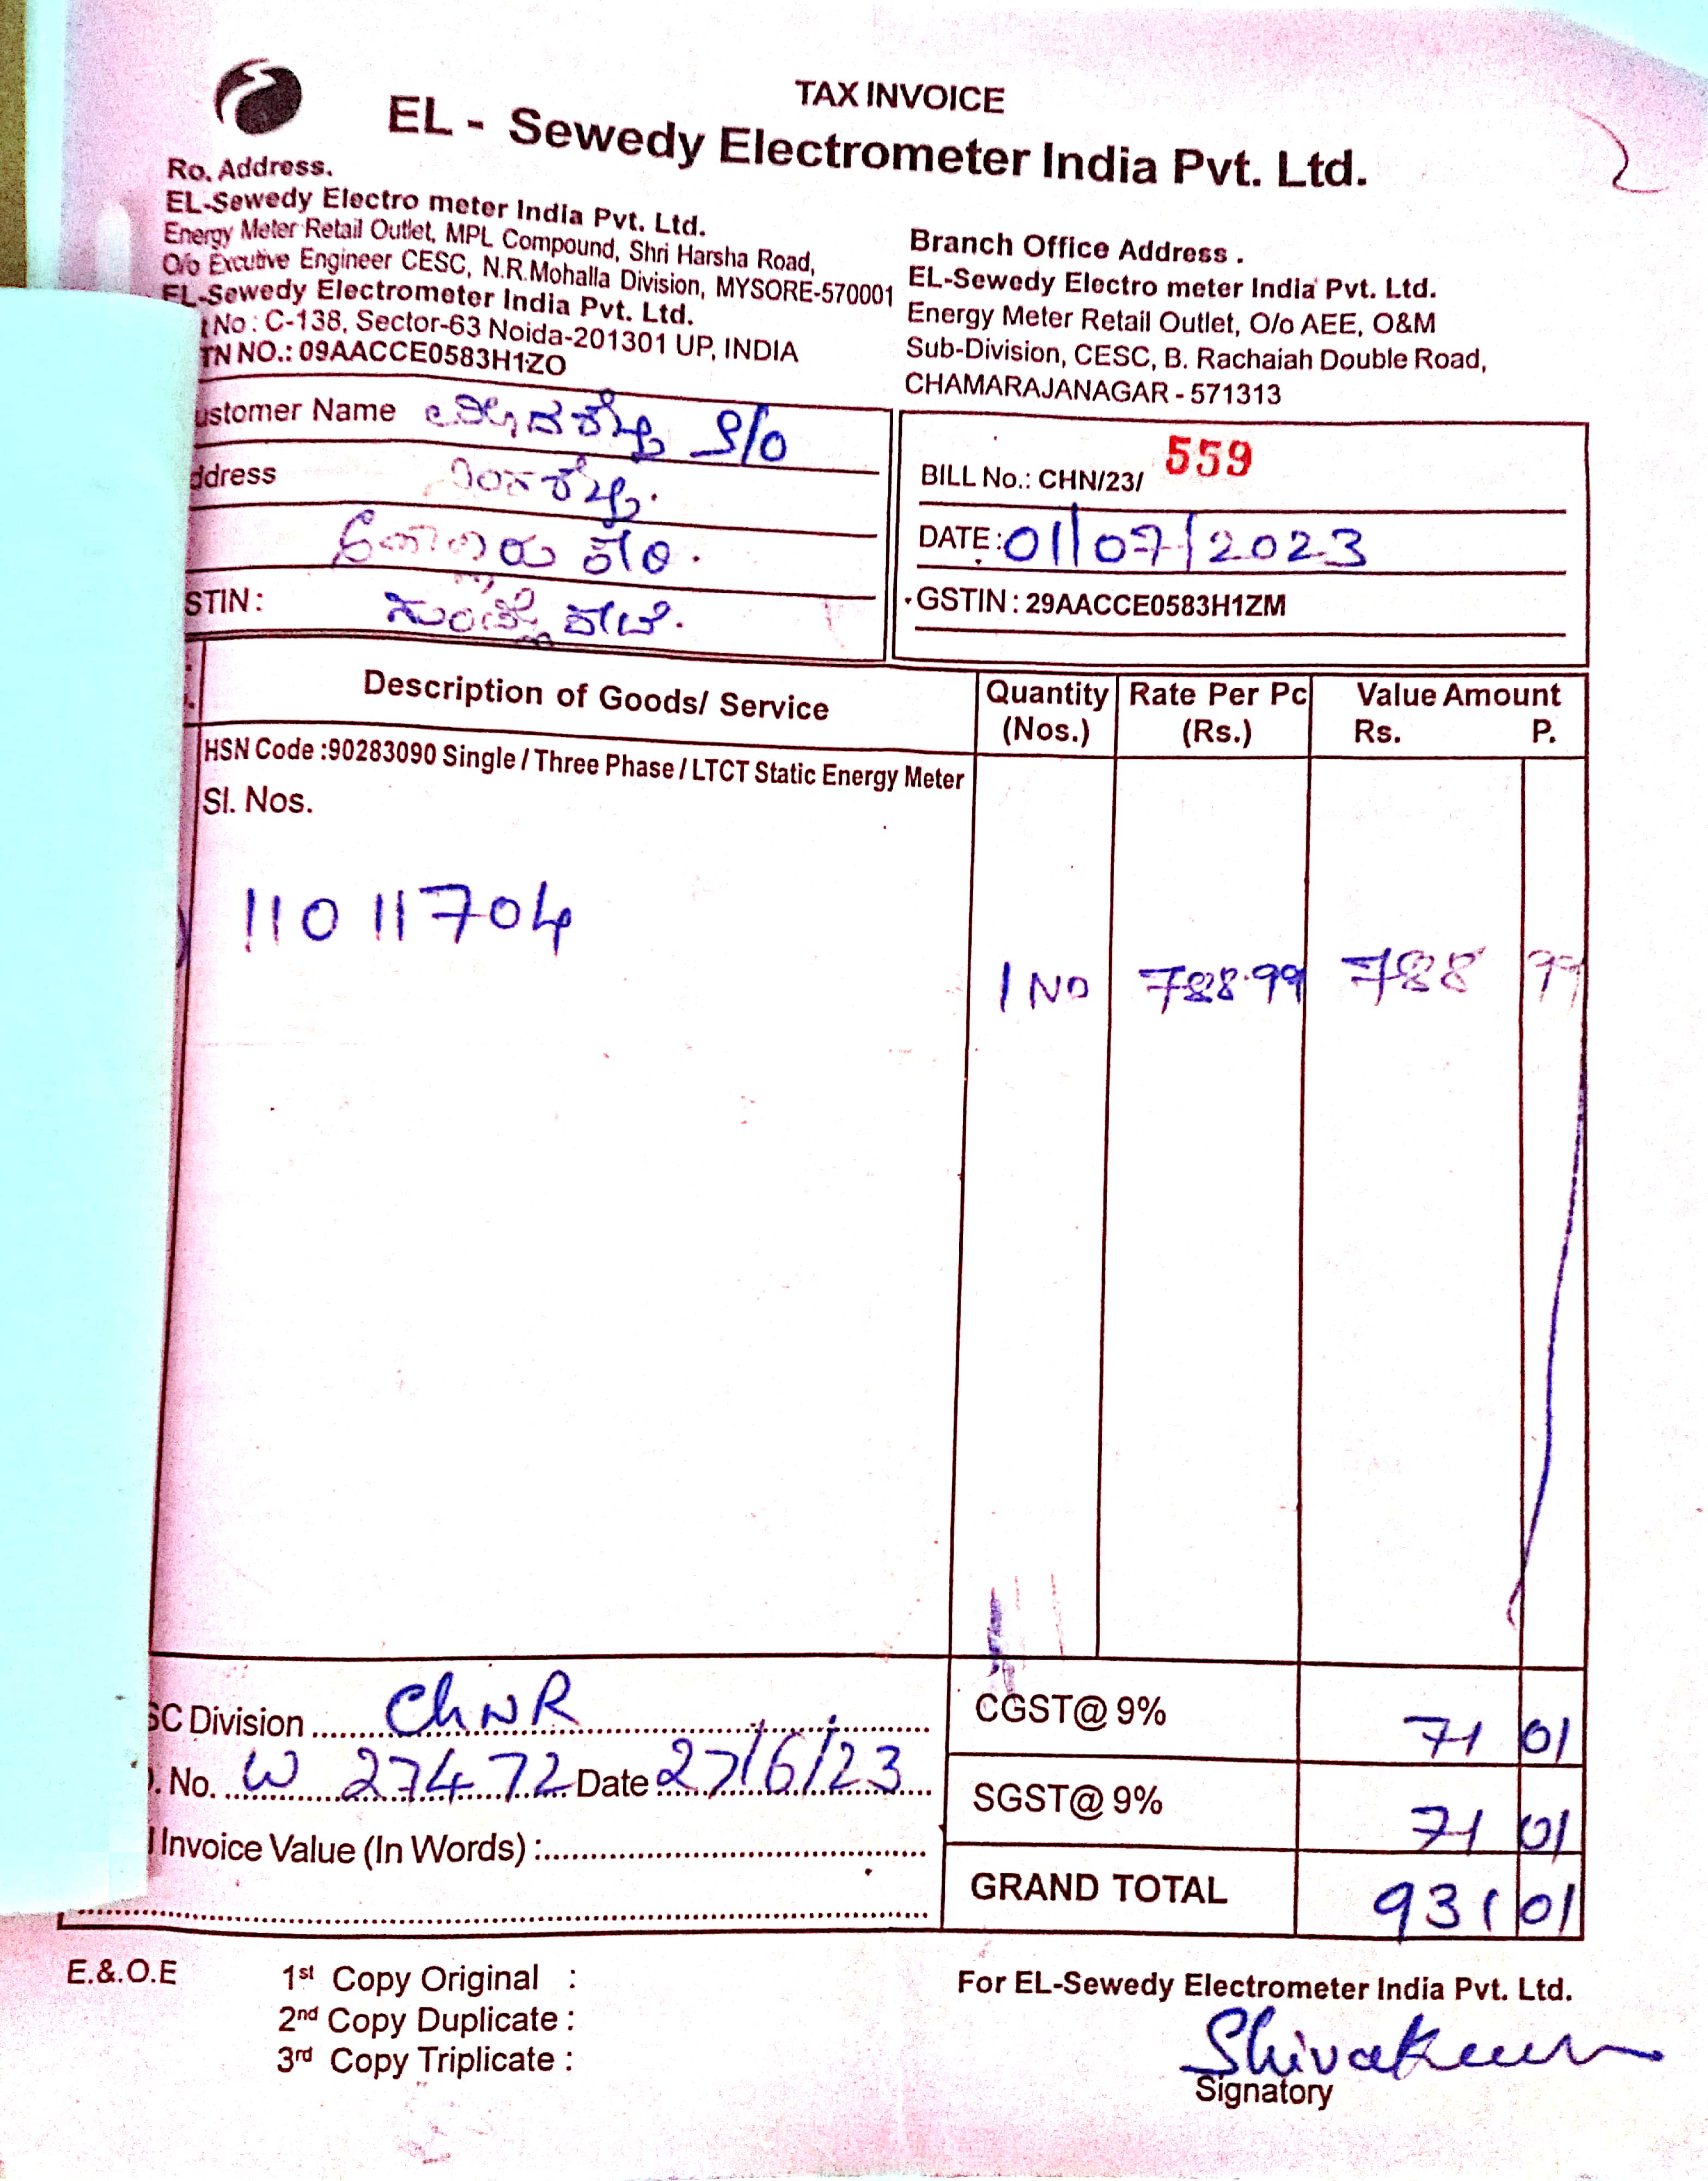 TAX INVOICE
EL - Sewedy Electrometer India Pvt. Ltd.
Ro. Address.
EL-Sewedy Electro meter India Pvt. Ltd.
Energy Meter Retail Outlet, MPL Compound, Shri Harsha Road,
O/o Excutive Engineer CESC, N.R.Mohalla Division, MYSORE-570001
EL-Sewedy Electrometer India Pvt. Ltd.
t No : C-138, Sector-63 Noida-201301 UP, INDIA
TN NO.: 09AACCE0583H1ZO
Branch Office Address .
EL-Sewedy Electro meter India Pvt. Ltd.
Energy Meter Retail Outlet, O/o AEE, O&M
Sub-Division, CESC, B. Rachaiah Double Road,
CHAMARAJANAGAR - 571313
ustomer Name S/o
ddress
STIN :
BILL No.: CHN/23/ 559
DATE : 01/07/2023
GSTIN : 29AACCE0583H1ZM
Description of Goods/ Service Quantity (Nos.) Rate Per Pc (Rs.) Value Amount Rs. P.
HSN Code :90283090 Single / Three Phase / LTCT Static Energy Meter
Sl. Nos.
11011704
1 NO 788.99 788 99
SC Division ChNR
. No. W 27472 Date 27/6/23
l Invoice Value (In Words) :
CGST@ 9% 71 01
SGST@ 9% 71 01
GRAND TOTAL 931 01
E.&.O.E
1st Copy Original :
2nd Copy Duplicate :
3rd Copy Triplicate :
For EL-Sewedy Electrometer India Pvt. Ltd.
Signatory